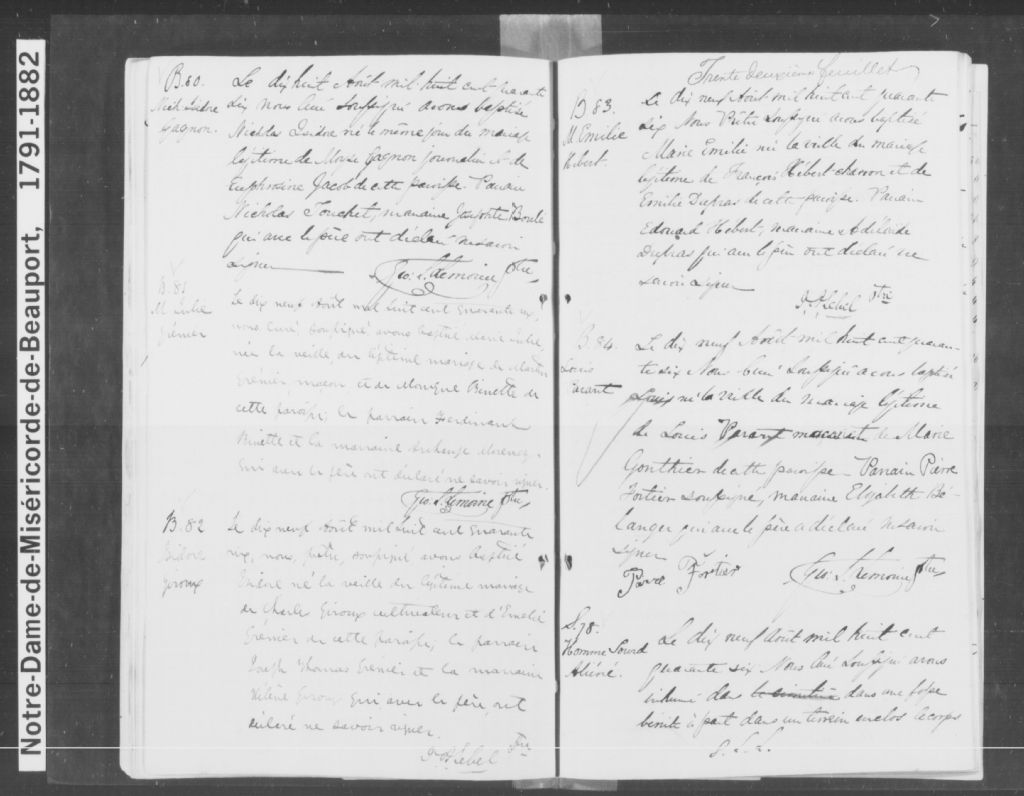 Notre-Dame-de-Miséricorde-de-Beauport, 1791-1882
B. 80.
Nich. Isidore
Gagnon.
Le dix huit Août mil huit cent quarante
six nous Curé soussigné avons baptisé
Nicolas Isidore né le même jour du mariage
légitime de Moïse Gagnon journalier et de
Euphrosine Jacob de cette paroisse. Parrain
Nicholas Touchet, marraine Josephte Boulé
qui avec le père ont déclaré ne savoir
signer
Geo. S. Lemoine Ptre
B. 81
M. Julie
Grénier
Le dix neuf Août mil huit cent quarante six,
nous, curé soussigné avons baptisé Marie Julie,
née la veille du légitime mariage de Martin
Grénier maçon et de Monique Binette de
cette paroisse; le parrain Ferdinand
Binette et la marraine Archange Morency.
qui avec le père ont déclaré ne savoir signer.
Geo. S. Lemoine Ptre
B. 82
Isidore
Giroux
Le dix neuf Août mil huit cent quarante
six, nous, prêtre, soussigné avons baptisé
Isidore né la veille du légitime mariage
de Charle Giroux cultivateur et d'Emelie
Grénier de cette paroisse; le parrain
Joseph Thomas Grénier et la marraine
Hélène Giroux qui avec le père, ont
déclaré ne savoir signer.
Ptre
Trente deuxième feuillet
B 83.
M. Emilie
Hébert.
Le dix neuf Août mil huit cent quarante
six Nous Prêtre soussigné avons baptisé
Marie Emilie née la veille du mariage
légitime de François Hébert charron et de
Emilie Dupras de cette paroisse. Parrain
Edouard Hébert, marraine Adélaïde
Dupras qui avec le père ont déclaré ne
savoir signer
Ptre
B. 84.
Louis
Parant
Le dix neuf Août mil huit cent quaran-
te six Nous Curé soussigné avons baptisé
Louis né la veille du mariage légitime
de Louis Parant et de Marie
Gonthier de cette paroisse - Parrain Pierre
Fortier soussigné, marraine Elizabeth Bé-
langer qui avec le père a déclaré ne savoir
signer
Pierre Fortier
Geo. S. Lemoine Ptre
S. 78.
Homme Sourd
Aliéné.
Le dix neuf Août mil huit cent
quarante six Nous Curé soussigné avons
inhumé dans le cimetière dans une fosse
bénite à part dans un terrein enclos le corps
G. S. L.